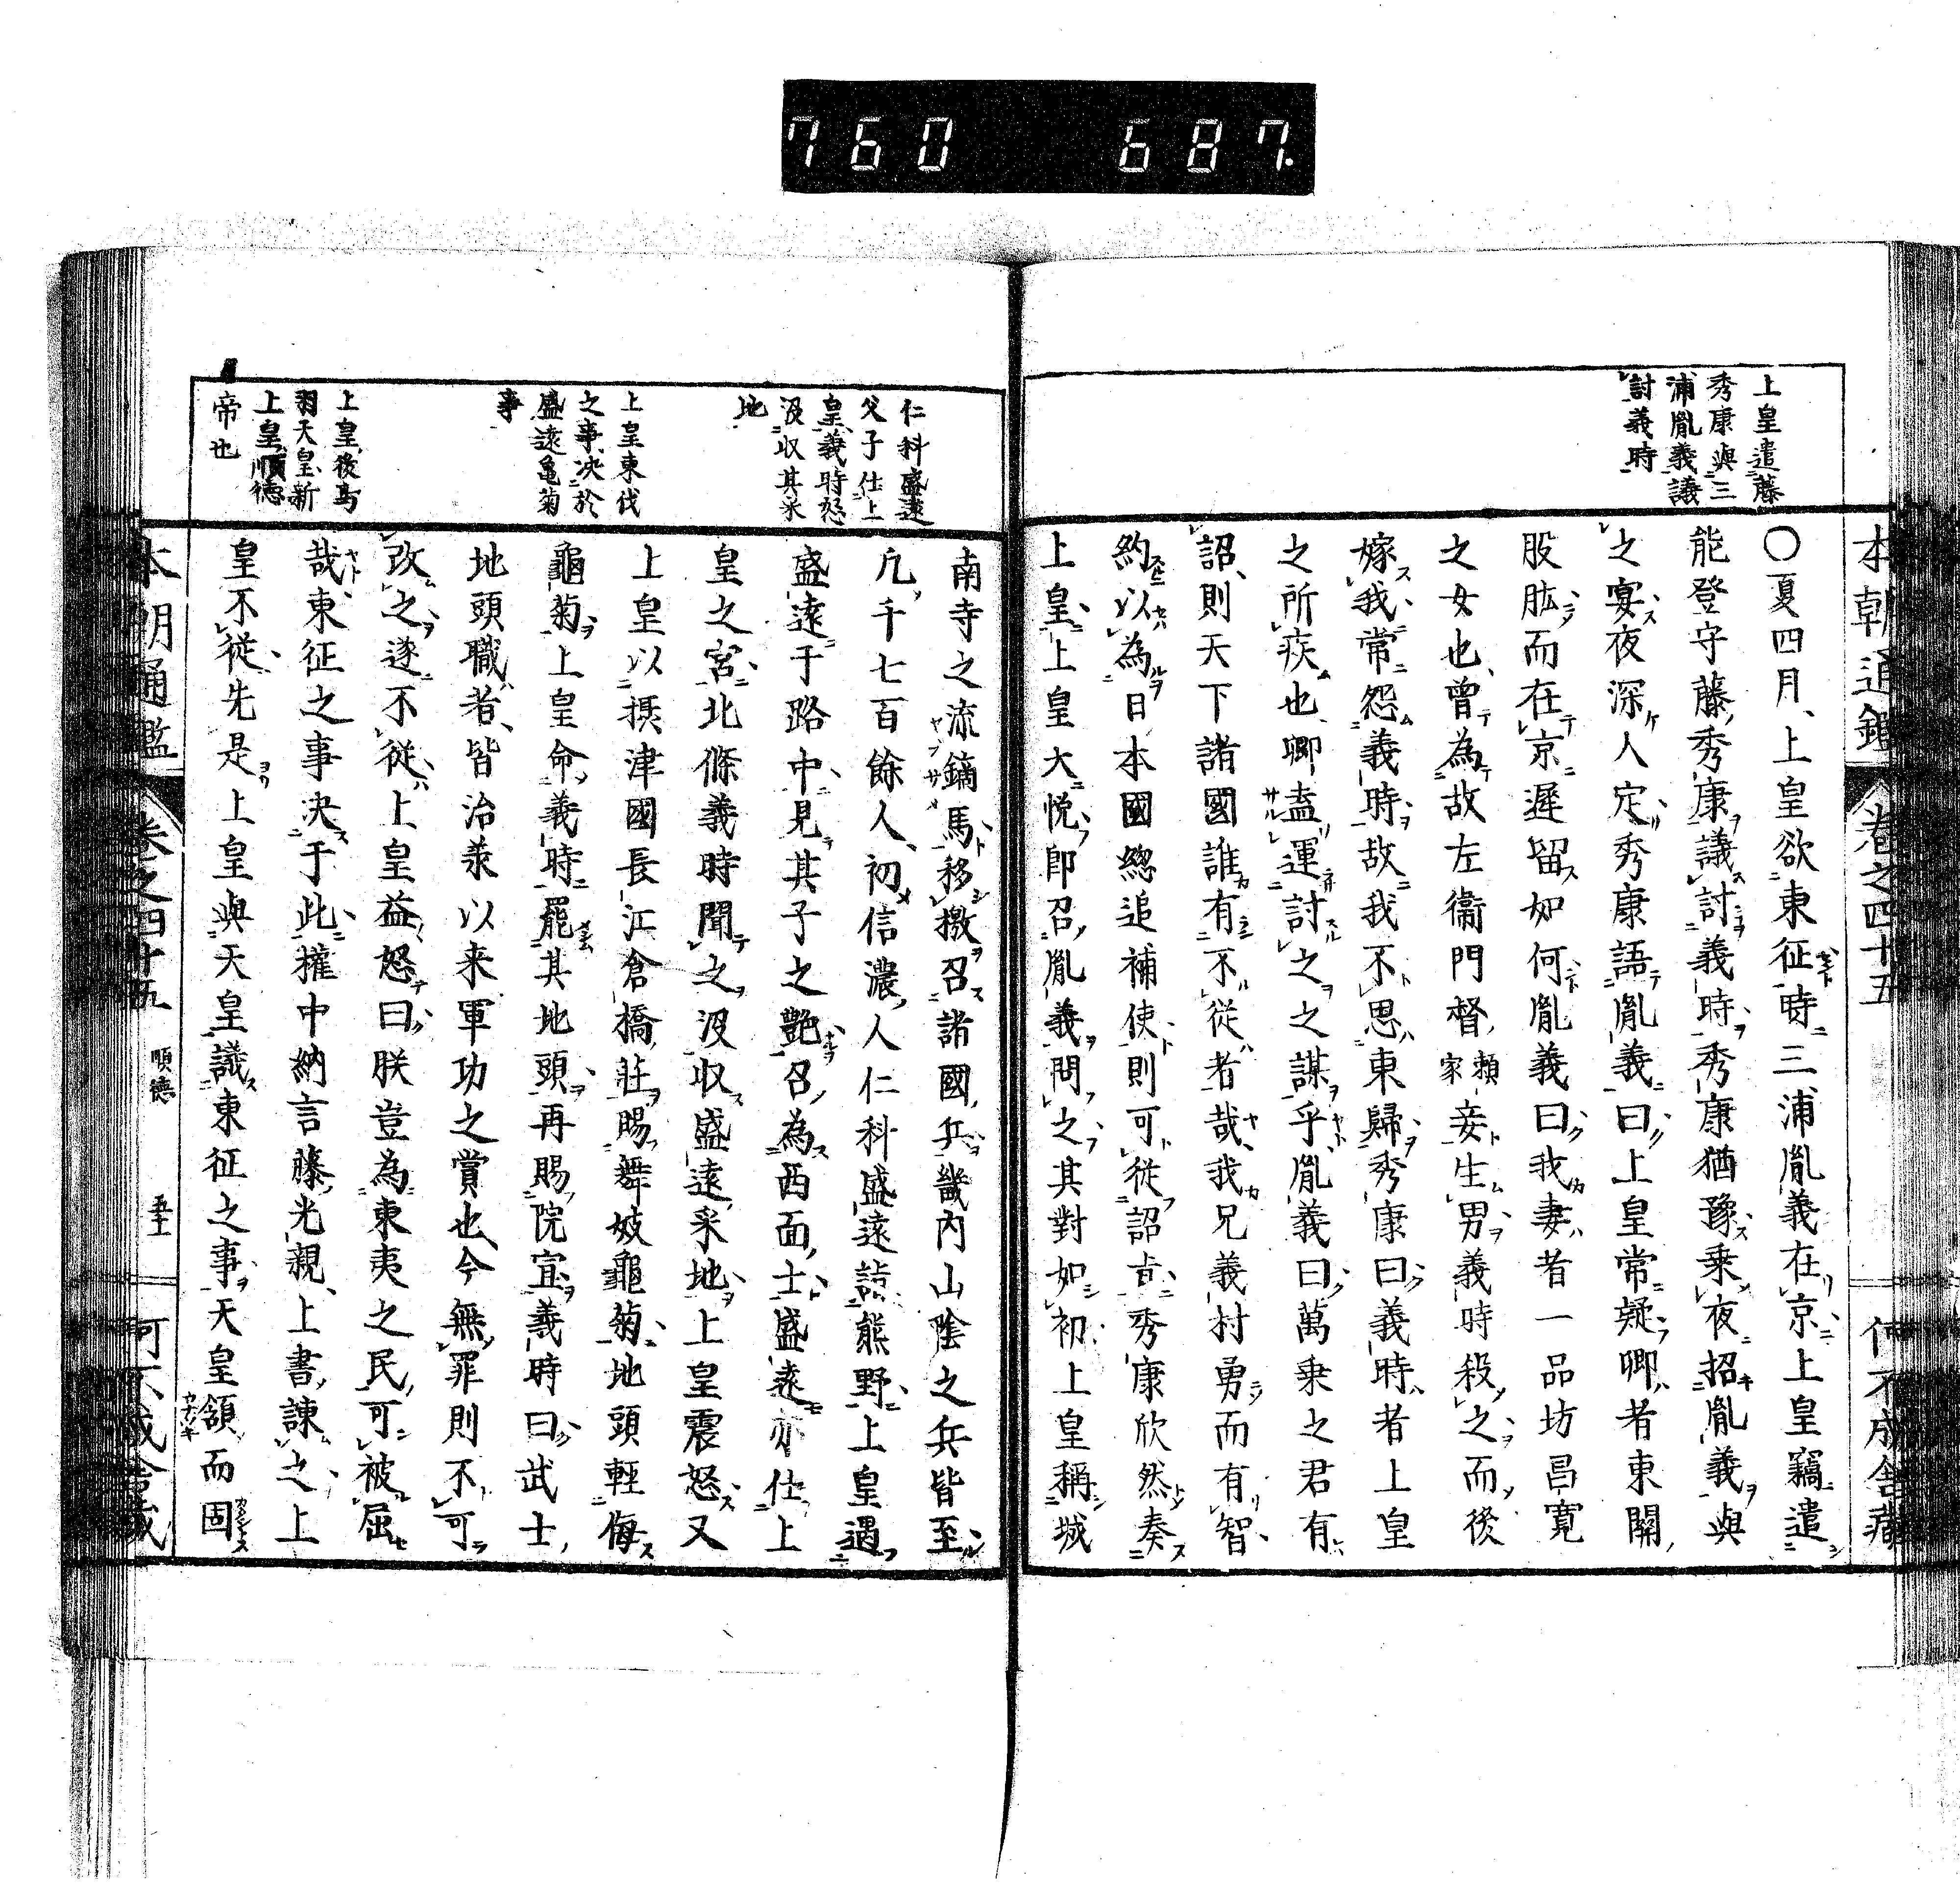 760 687.
本朝通鑑 卷之四十五
上皇遣藤
秀康與三
浦胤義議
討義時
〇夏四月、上皇欲東征時三浦胤義在京上皇竊遣
能登守藤秀康議討義時秀康猶豫乗夜招胤義與
之宴夜深人定秀康語胤義曰上皇常疑卿者東關
股肱而在京遲留如何胤義曰我妻者一品坊昌寛
之女也曾為故左衞門督頼家妾生男義時殺之而後
嫁我常怨義時故我不思東歸秀康曰義時者上皇
之所疾也卿盍運討之之謀乎胤義曰萬乗之君有
詔則天下諸國誰有不從者哉我兄義村勇而有智
約以為日本國總追補使則可從詔旨秀康欣然奏
上皇上皇大悅即召胤義問之其對如初上皇稱城
仁科盛遠
父子仕上
皇義時怒
沒収其采
地
上皇東伐
之事決於
盛遠亀菊
事
上皇後鳥
羽天皇新
上皇順德
帝也
南寺之流鏑馬移檄召諸國兵畿内山陰之兵皆至
凡千七百餘人初信濃人仁科盛遠詣熊野上皇遇
盛遠于路中見其子之艶召為西面士盛遠亦仕上
皇之宮北條義時聞之沒収盛遠采地上皇震怒又
上皇以摂津國長江倉橋莊賜舞妓龜菊地頭輕侮
龜菊上皇命義時罷其地頭再賜院宣義時曰武士
地頭職者皆治承以来軍功之賞也今無罪則不可
改之遂不從上皇益怒曰朕豈為東夷之民可被屈
哉東征之事決于此權中納言藤光親上書諫之上
皇不從先是上皇與天皇議東征之事天皇頷而固
本朝通鑑 卷之四十五 順德 五十